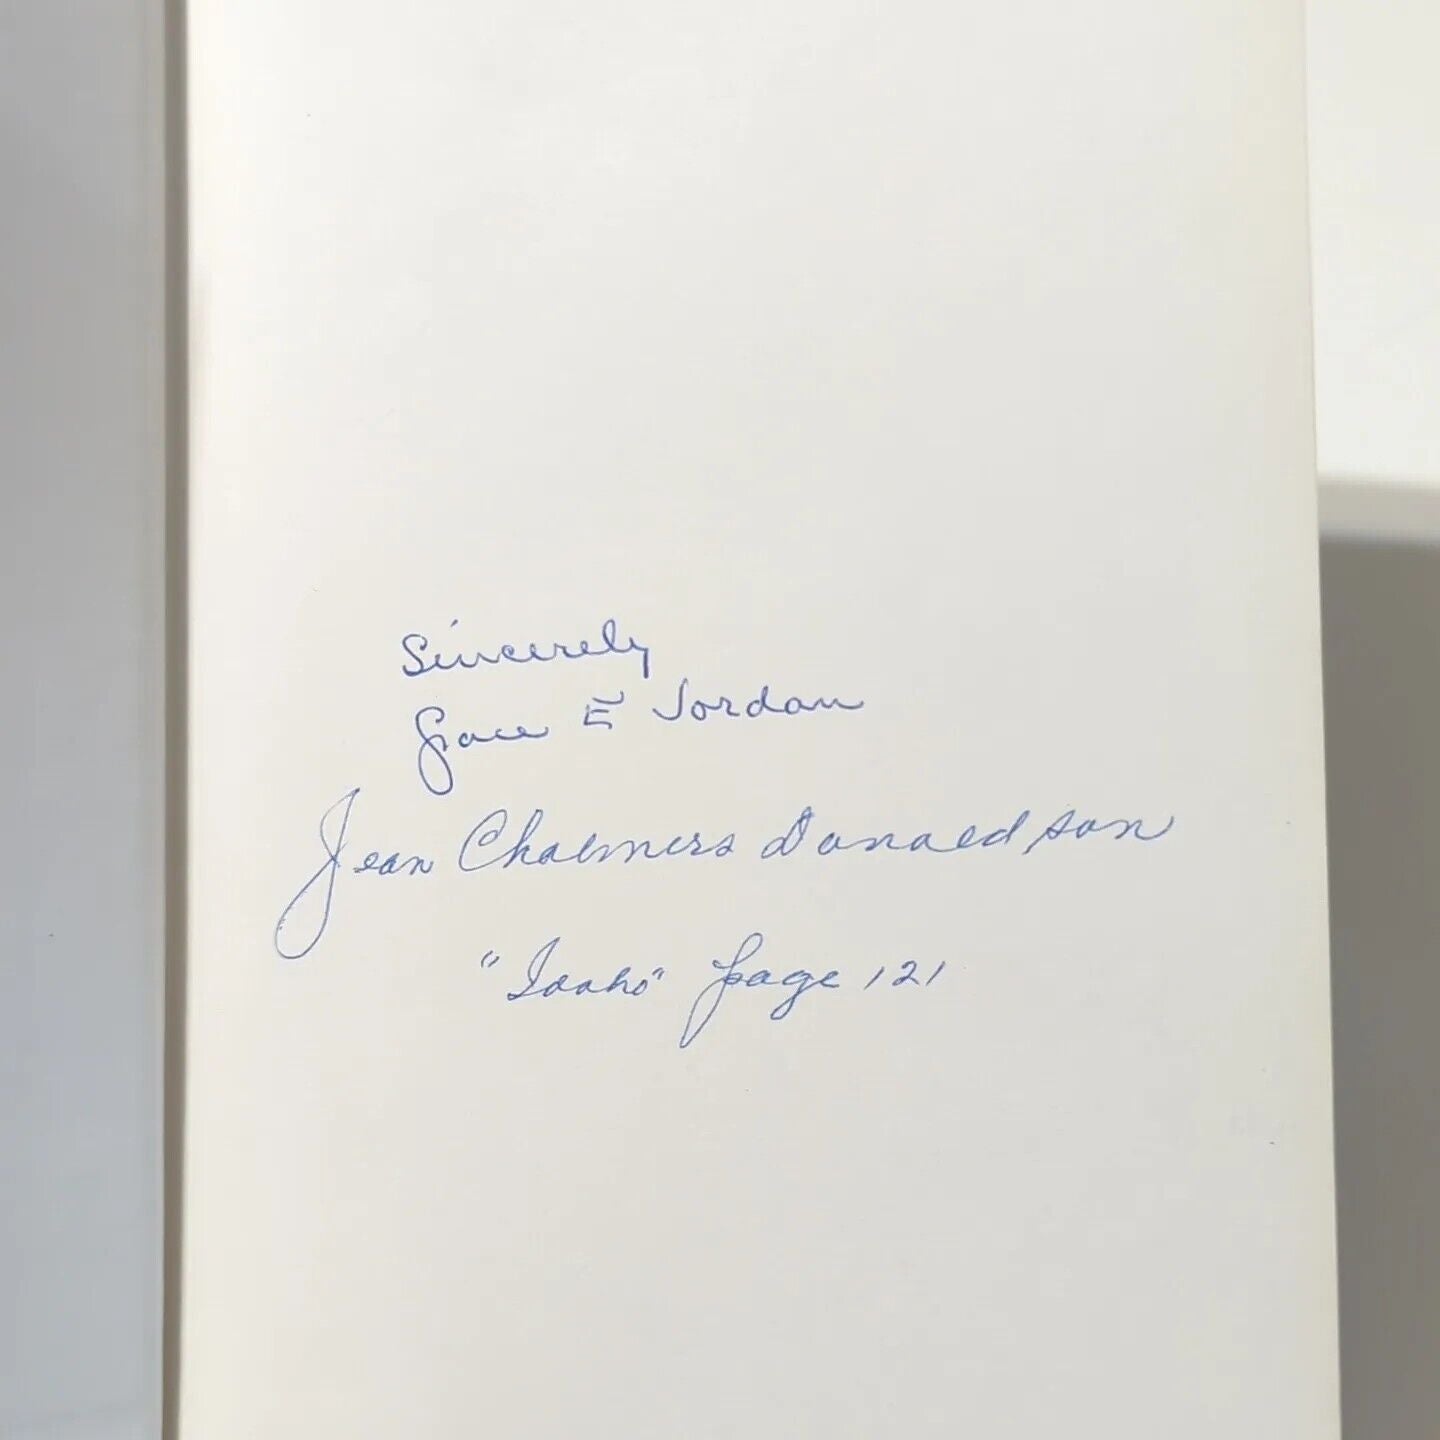 Sincerely
Grace E Jordan
Jean Chalmers Donaldson
"Idaho" page 121